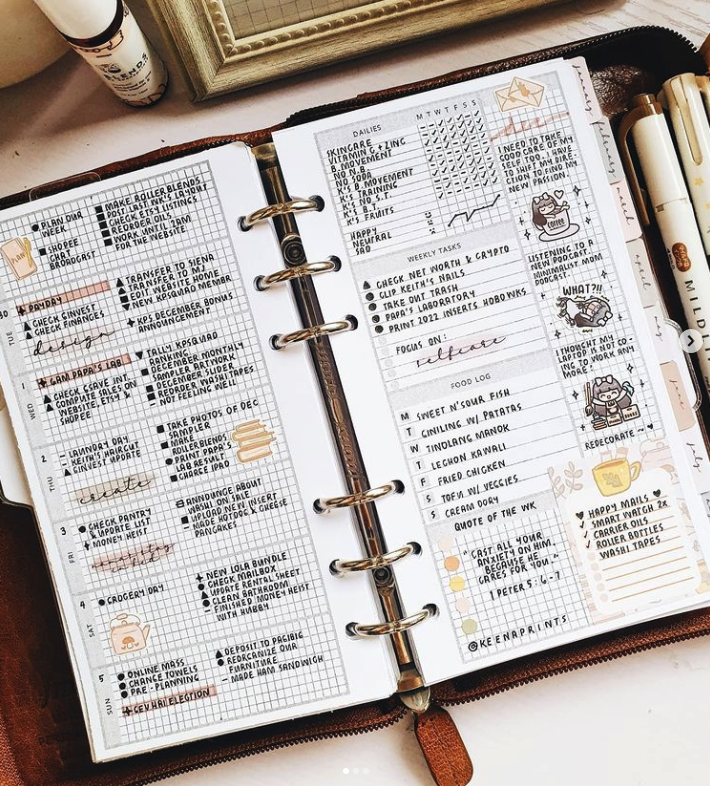 PLAN OUR
WEEK
SHOPEE
CHAT
BROADCAST
MAKE ROLLERBLENDS
RESTOCK ETSY LISTINGS
REORDER OILS
WORK UNTIL 7AM
FOR THE WEBSITE
30
TUE
PAYDAY
CHECK GINVEST
CHECK FINANCES
design
TRANSFER TO SIENA
TRANSFER TO MJ
EDIT WEBSITE HOME
NEW KPSQUAD MEMBR
KPS DECEMBER BONUS
ANNOUNCEMENT
1
WED
GAM PAPA'S LAB.
CHECK GSAVE INT.
COMPUTE SALES ON
WEBSITE, ETSY &
SHOPEE
TALLY KPSQUAD
RANKING
DECEMBER MONTHLY
SAMPLER ARTWORK
DECEMBER SLIDER
REORDER WASHI TAPES
NOT FEELING WELL
2
THU
LAUNDRY DAY
KEITH'S HAIRCUT
GINVEST UPDATE
create
TAKE PHOTOS OF DEC
SAMPLER
MAKE
ROLLERBLENDS
PRINT PAPA'S
LAB RESULT
CHARGE IPAD
3
FRI
CHECK PANTRY
& UPDATE LIST
MONEY HEIST
ANNOUNCE ABOUT
WASHI ON SALE
UPLOAD NEW INSERT
MADE HOTDOG & CHEESE
PANCAKES
4
SAT
GROCERY DAY
NEW LOLA BUNDLE
CHECK MAILBOX
UPDATE RENTAL SHEET
CLEAN BATHROOM
FINISHED MONEY HEIST
WITH HUBBY
5
SUN
ONLINE MASS
CHANGE TOWELS
PRE - PLANNING
GEV HAI ELECTION
DEPOSIT TO PAGIBIG
REORGANIZE OUR
FURNITURE
MADE HAM SANDWICH
DAILIES
M T W T F S S
SKINCARE
VITAMIN C + ZINC
B. MOVEMENT
NO N.B.
NO SODA
K'S B. MOVEMENT
K'S TRAINING
K'S NO S.T.
K'S B.T.
K'S FRUITS
HAPPY
NEUTRAL
SAD
WEEKLY TASKS
CHECK NET WORTH & CRYPTO
CLIP KEITH'S NAILS
TAKE OUT TRASH
PAPA'S LABORATORY
PRINT 2022 INSERTS HOBO WKS
FOCUS ON:
selfcare
FOOD LOG
M SWEET N' SOUR FISH
T GINILING W/ PATATAS
W TINOLANG MANOK
T LECHON KAWALI
F FRIED CHICKEN
S TOFU W/ VEGGIES
S CREAM DORY
QUOTE OF THE WK
" CAST ALL YOUR
ANXIETY ON HIM,
BECAUSE HE
CARES FOR YOU ~
1 PETER 5:6-7
@KEENAPRINTS
I NEED TO TAKE
GOOD CARE OF MY
SELF TOO. I HAVE
TO SHIFT MY DIRE-
CTION TO FIND MY
NEW PASSION.
COFFEE
LISTENING TO A
NEW PODCAST:
MINIMALIST MOM
PODCAST.
WHAT?!!
I THOUGHT MY
LAPTOP IS NOT GO-
ING TO WORK ANY
MORE!
REDECORATE ~ ♥
♥ HAPPY MAILS ♥
✓ SMART WATCH 2x
✓ CARRIER OILS
✓ ROLLER BOTTLES
WASHI TAPES
january
february
march
april
may
june
MILD